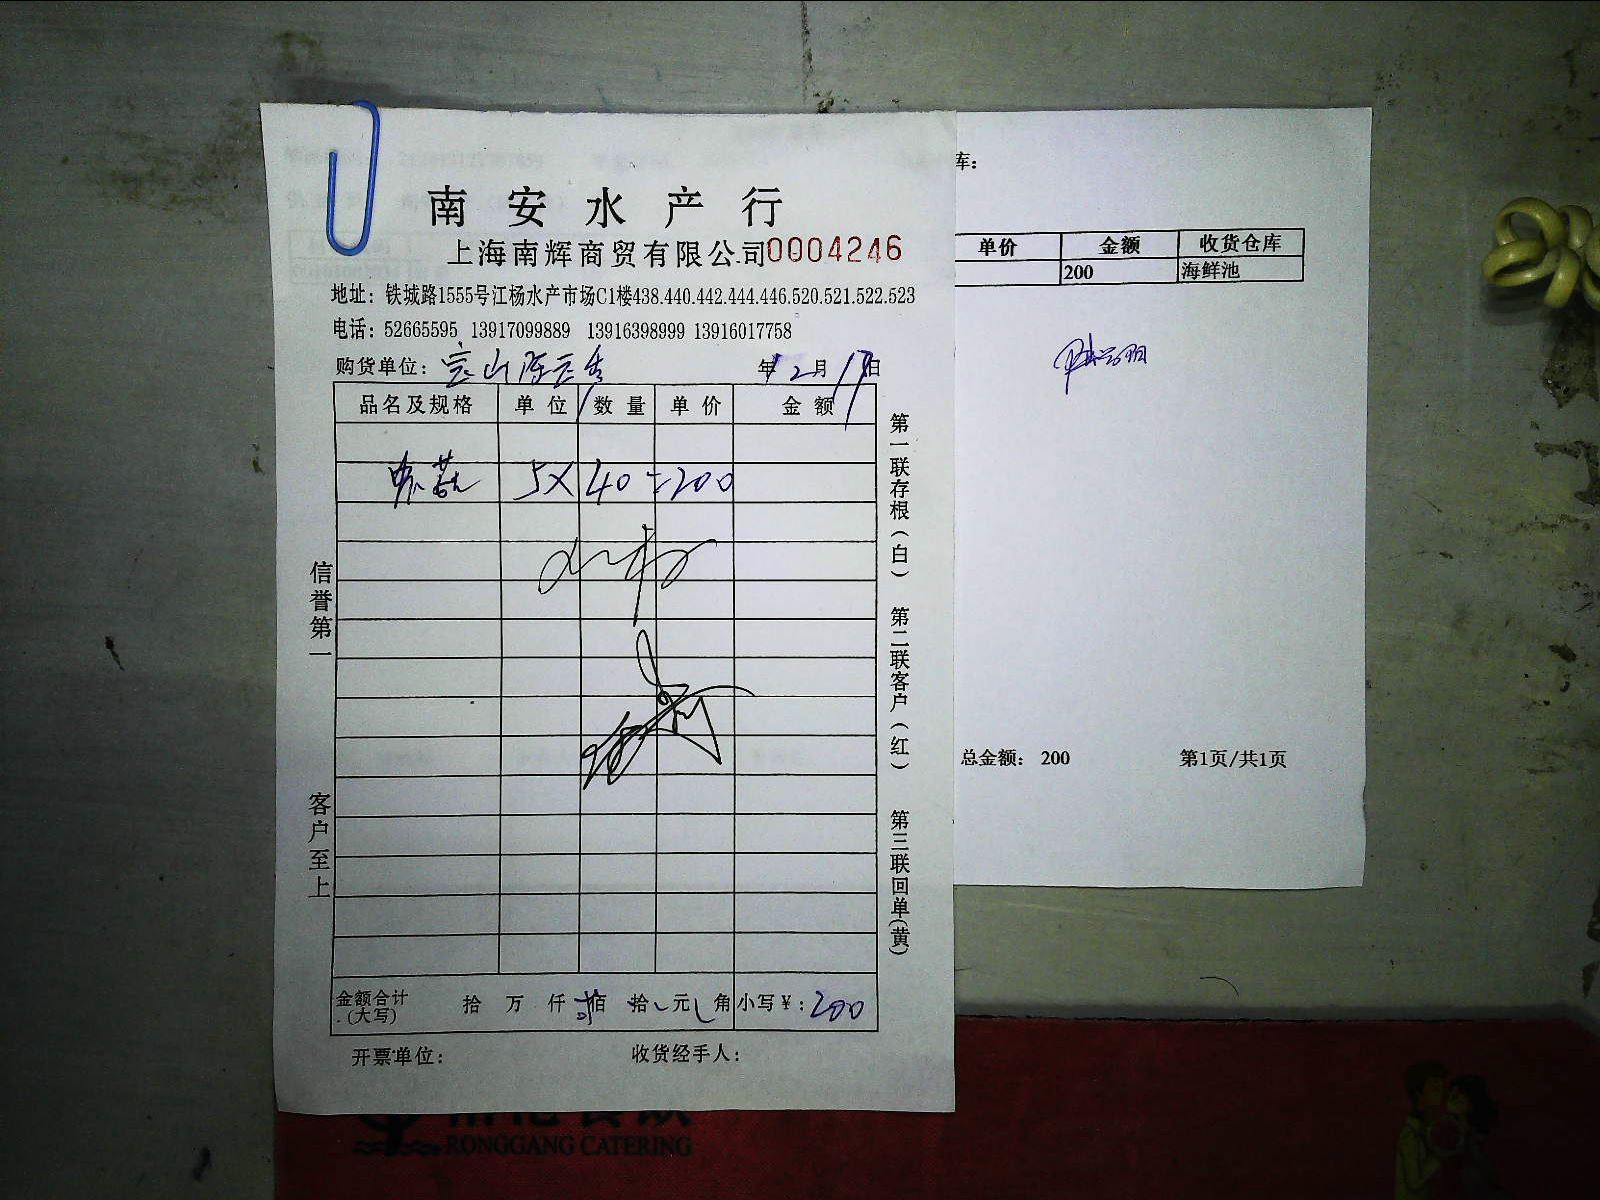 南安水产行
上海南辉商贸有限公司 0004246
地址：铁城路1555号江杨水产市场C1楼438.440.442.444.446.520.521.522.523
电话：52665595 13917099889 13916398999 13916017758
购货单位：宝山 年12月17日
品名及规格 单位 数量 单价 金额
5×40=200
金额合计(大写) 拾 万 仟 贰佰 拾 元 角 小写￥：200
开票单位： 收货经手人：
信誉第一
客户至上
第一联存根(白) 第二联客户(红) 第三联回单(黄)
库：
单价 金额 收货仓库
200 海鲜池
总金额： 200 第1页/共1页
RONGGANG CATERING